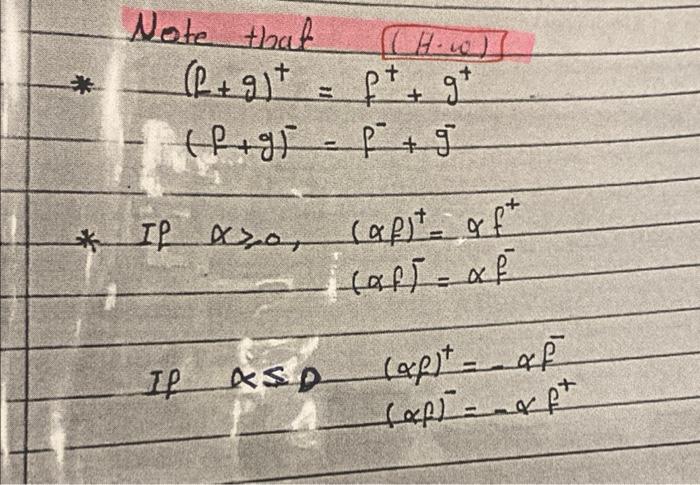 Note that (H.w)
* (f+g)⁺ = f⁺ + g⁺
(f+g)⁻ = f⁻ + g⁻
* If α≥0, (αf)⁺ = αf⁺
(αf)⁻ = αf⁻
If α≤0 (αf)⁺ = -αf⁻
(αf)⁻ = -αf⁺